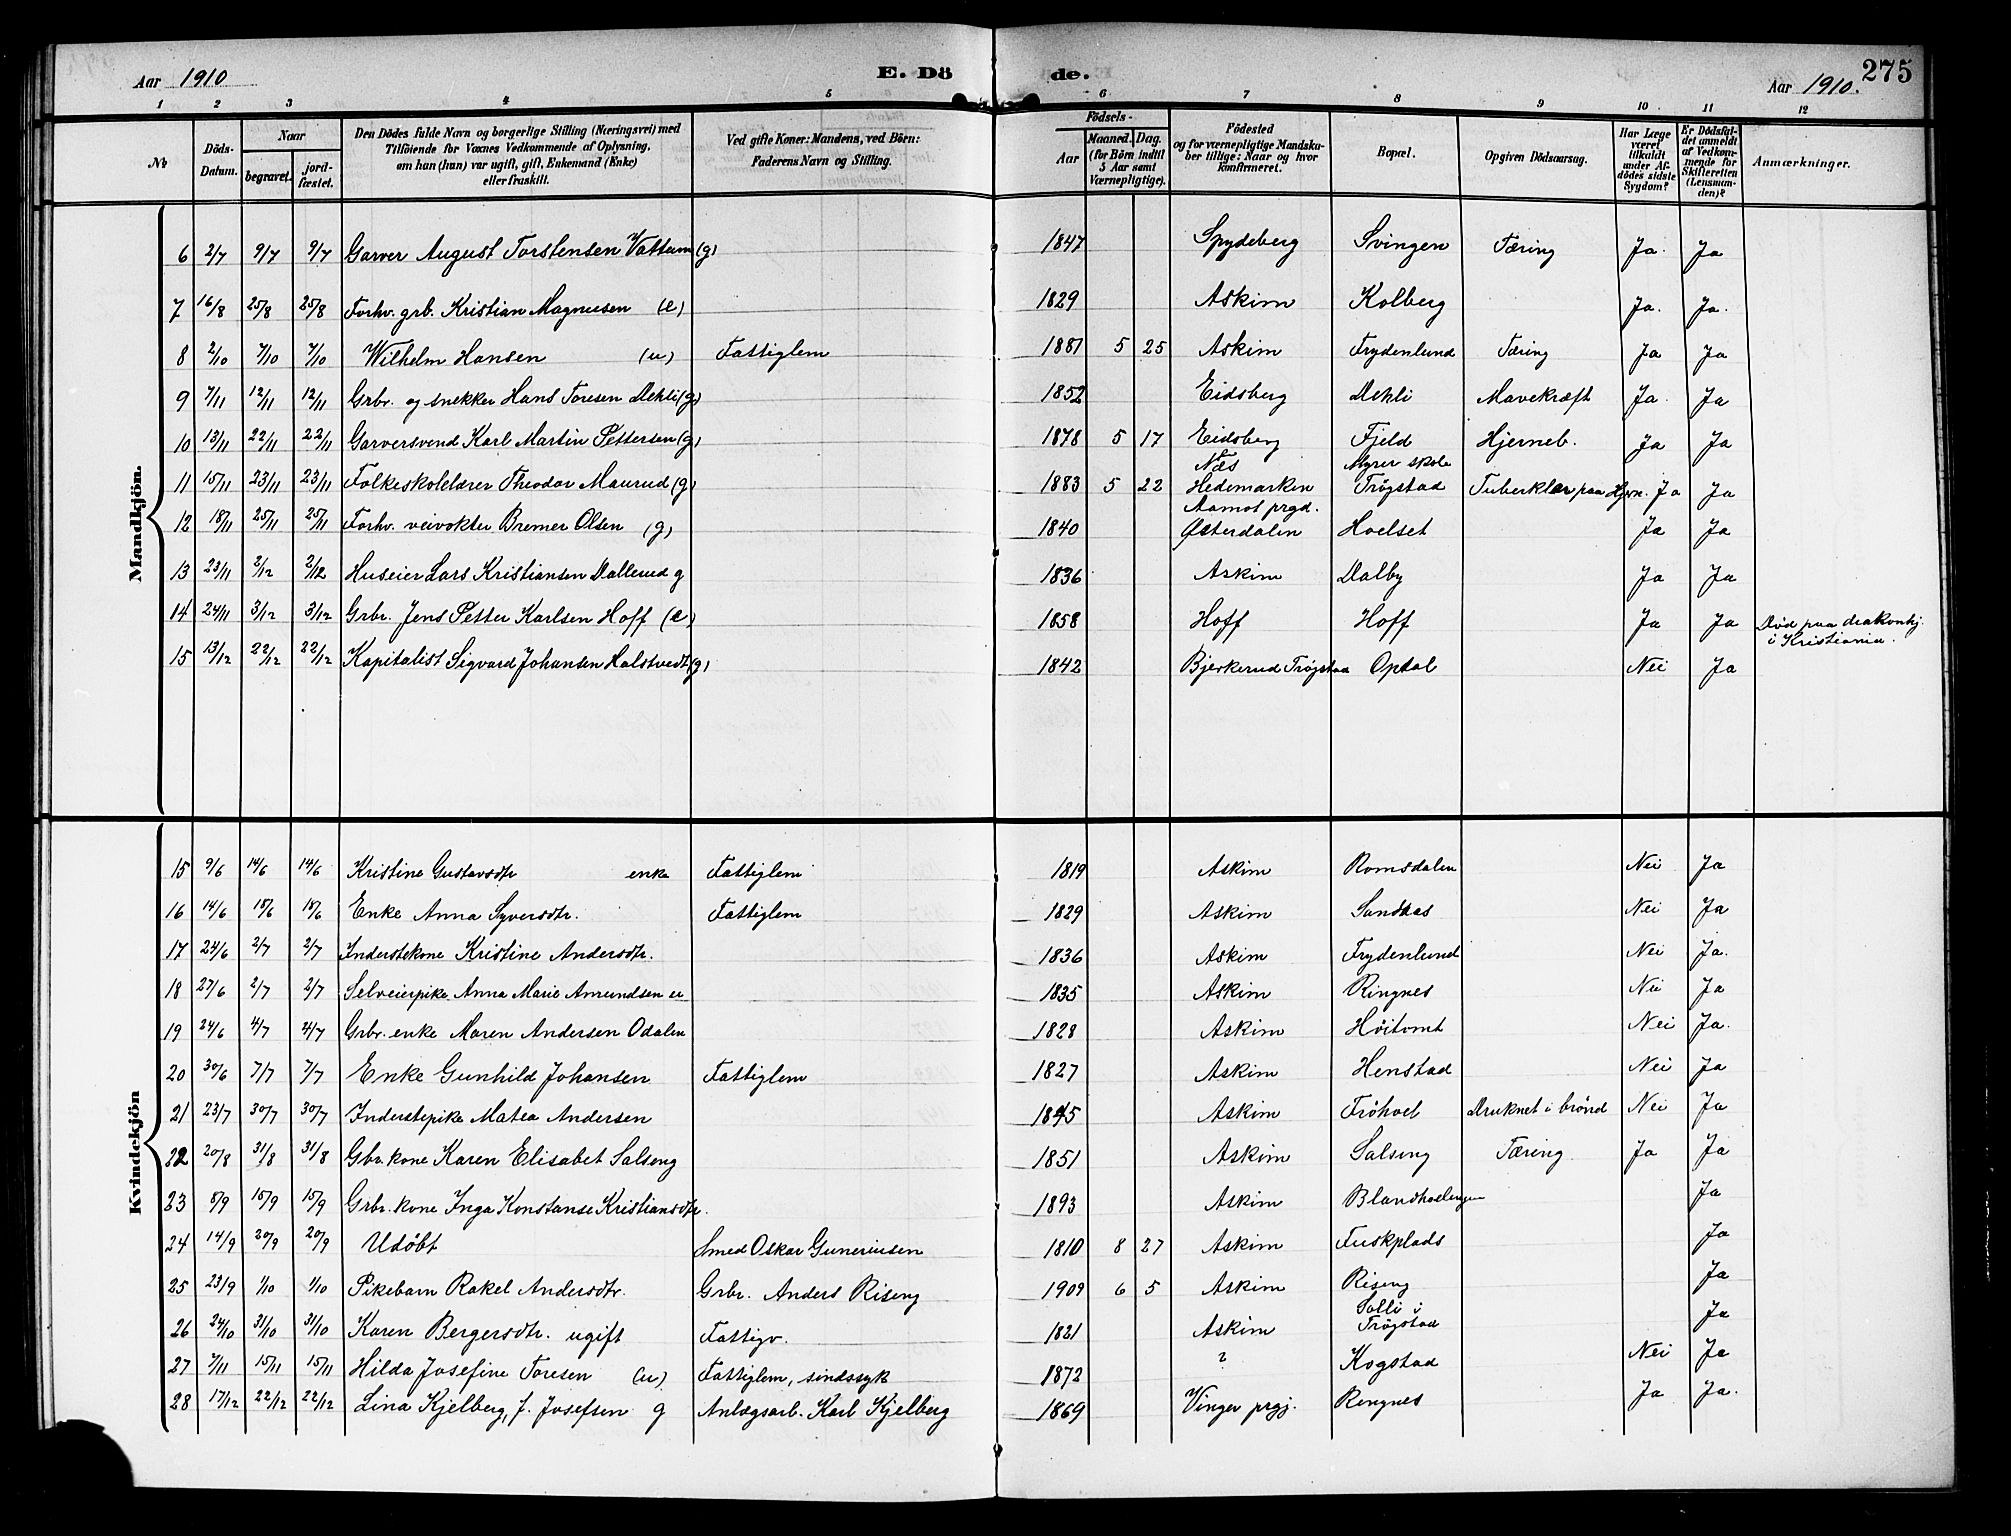 Aar 1910 E. Dö de. Aar 1910. 275
1 2 3 4 5 6 7 8 9 10 11 12
No
Döds-Datum.
Naar
begravet. jordfæstet.
Den Dödes fulde Navn og borgerlige Stilling (Næringsvei) med
Tilföiende for Voxnes Vedkommende af Oplysning,
om han (hun) var ugift, gift, Enkemand (Enke)
eller fraskilt.
Ved gifte Koner: Mandens, ved Börn:
Faderens Navn og Stilling.
Födsels-
Aar Maaned. Dag.
(for Börn indtil
5 Aar samt
Værnepligtige).
Födested
og for værnepligtige Mandska-
ber tillige: Naar og hvor
konfirmeret.
Bopæl.
Opgiven Dödsaarsag.
Har Læge
været
tilkaldt
under Af-
dödes sidste
Sygdom?
Er Dödsfal-
det anmeldt
af Vedkom-
mende for
Skifteretten
(Lensman-
den)?
Anmærkninger.
Mandkjön.
6 2/7 9/7 9/7 Garver August Torstensen Vattum (g) 1847 Spydeberg Svingen Tæring Ja. Ja
7 16/8 25/8 25/8 Forhv. grb. Kristian Magnusen (e) 1829 Askim Kolberg Ja. Ja.
8 2/10 7/10 7/10 Wilhelm Hansen (u) Fattiglem 1881 5 25 Askim Frydenlund Tæring Ja Ja
9 7/11 12/11 12/11 Grbr. og snekker Hans Toresen Mehli (g) 1852 Eidsberg Mehli Mavekræft Ja. Ja
10 13/11 22/11 22/11 Garversvend Karl Martin Pettersen (g) 1878 5 17 Eidsberg Fjeld Hjerneb. Ja Ja
11 15/11 23/11 23/11 Folkeskolelærer Theodor Maurud (g) 1883 5 22 Næs Hedemarken Myrer skole Trøgstad Tuberkler paa Hjrn. Ja Ja
12 18/11 25/11 25/11 Forhv. veivokter Bremer Olsen (g) 1840 Aamot prgd. Østerdalen Hoelset Ja Ja
13 23/11 2/12 2/12 Huseier Lars Kristiansen Dallerud g 1836 Askim Dalby Ja Ja
14 24/11 3/12 3/12 Grbr. Jens Petter Karlsen Hoff (e) 1858 Hoff Hoff Ja Ja Død paa diakonhj. i Kristiania.
15 13/12 22/12 22/12 Kapitalist Sigvard Johansen Halstvedt (g) 1842 Bjerkerud Trøgstad Optal Nei Ja
Kvindekjön
15 9/6 14/6 14/6 Kristine Gustavsdtr enke Fattiglem 1819 Askim Romsdalen Nei Ja
16 14/6 18/6 18/6 Enke Anna Syversdtr. Fattiglem 1829 Askim Sandaas Nei Ja
17 24/6 2/7 2/7 Inderstekone Kristine Andersdtr. 1836 Askim Frydenlund Nei Ja.
18 27/6 2/7 2/7 Selveierpike Anna Marie Amundsen u 1835 Askim Ringnes Nei Ja
19 24/6 4/7 4/7 Grbr. enke Maren Andersen Odalen 1828 Askim Høitomt Nei Ja.
20 30/6 7/7 7/7 Enke Gunhild Johansen Fattiglem 1827 Askim Henstad Nei Ja
21 23/7 30/7 30/7 Inderstepike Matea Andersen 1845 Askim Frøhoel Druknet i brønd Nei Ja
22 20/8 31/8 31/8 Gbr. kone Karen Elisabet Salseng 1851 Askim Salseng Tæring Ja Ja
23 8/9 15/9 15/9 Grbr. kone Inga Konstanse Kristiansdtr. 1893 Askim Blandhoelengen Ja
24 14/9 20/9 20/9 Udøbt Smed Oskar Guneriusen 1810 8 27 Askim Fuskplads Ja
25 23/9 1/10 1/10 Pikebarn Rakel Andersdtr. Grbr. Anders Riseng 1909 6 5 Askim Riseng Ja
26 24/10 31/10 31/10 Karen Bergersdtr. ugift Fattigv. 1821 Askim Solli i Trøgstad Ja
27 7/11 15/11 15/11 Hilda Josefine Toresen (u) Fattiglem, sindssyk 1872 ? Kogstad Nei Ja
28 17/12 22/12 22/12 Lina Kjelberg, f. Josefsen g Anlægsarb. Karl Kjelberg 1869 Vinger prgj. Rengnes Ja Ja.